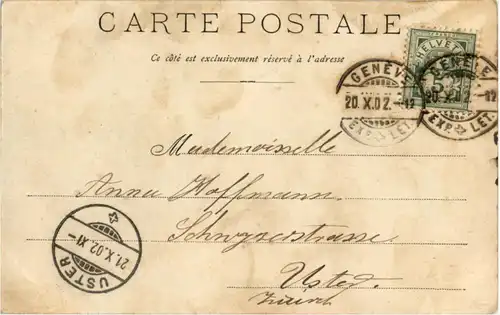 CARTE POSTALE
Ce côté est exclusivement réservé à l'adresse
HELVETIA
GENÈVE
20.X.02.-12
EXP. LET.
GENÈVE
EXP. LET.
Mademoiselle
Anna Hoffmann.
Schwyzerstrasse.
Uster.
Zürich
21.X.02.XI-
USTER